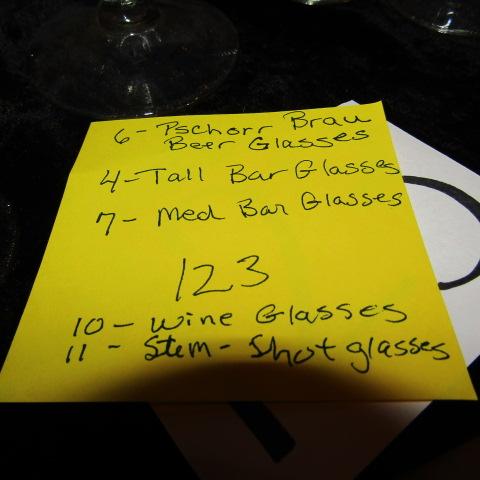 6- Pschorr Brau
Beer Glasses
4-Tall Bar Glasses
7- Med Bar Glasses
123
10 - Wine Glasses
11 - Stem - Shot glasses